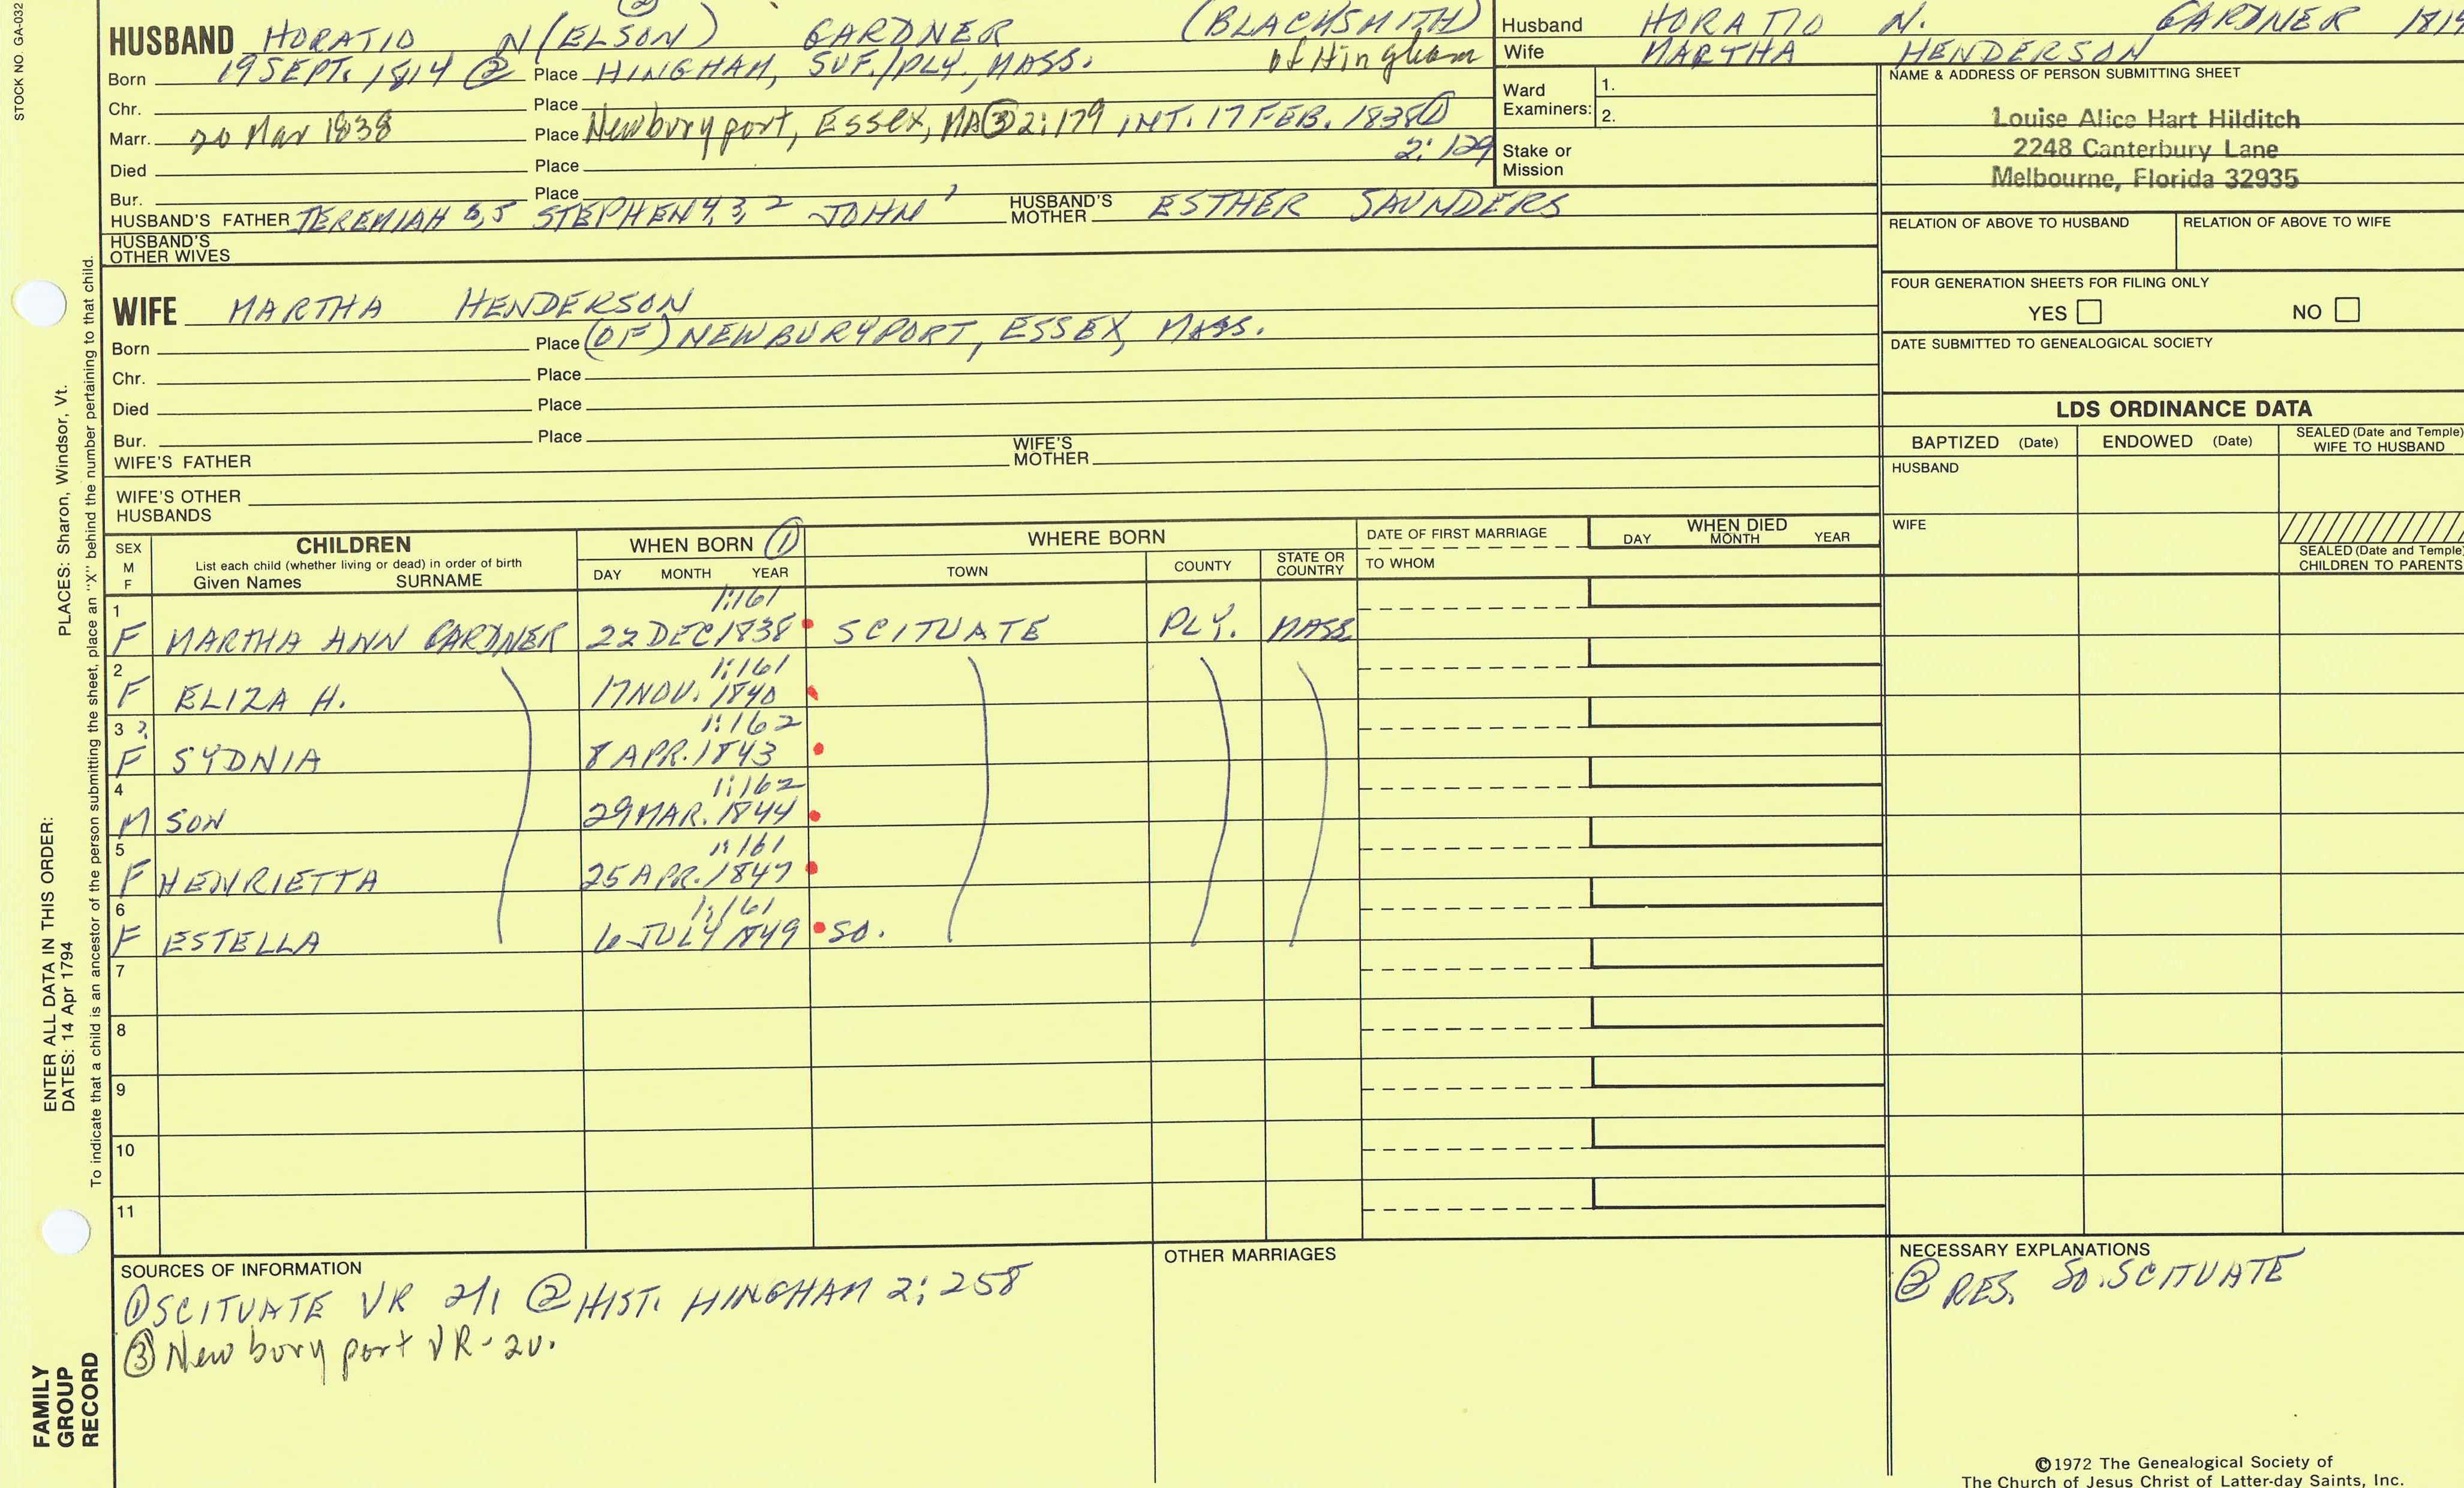 STOCK NO. GA-032
HUSBAND HORATIO N(ELSON) GARDNER (BLACKSMITH)
of Hingham
Born 19 SEPT. 1814 ② Place HINGHAM, SUF./PLY., MASS.
Chr. Place
Marr. 20 Mar 1838 Place Newburyport, Essex, MA ③ 2:179 INT. 17 FEB. 1838 ①
2:129
Died Place
Bur. Place
HUSBAND'S FATHER JEREMIAH 6,5 STEPHEN 4,3,2 JOHN 1 HUSBAND'S MOTHER ESTHER SAUNDERS
HUSBAND'S OTHER WIVES
Husband HORATIO N. GARDNER 1814
Wife MARTHA HENDERSON
Ward Examiners: 1.
2.
Stake or Mission
NAME & ADDRESS OF PERSON SUBMITTING SHEET
Louise Alice Hart Hilditch
2248 Canterbury Lane
Melbourne, Florida 32935
RELATION OF ABOVE TO HUSBAND RELATION OF ABOVE TO WIFE
FOUR GENERATION SHEETS FOR FILING ONLY
YES NO
DATE SUBMITTED TO GENEALOGICAL SOCIETY
WIFE MARTHA HENDERSON
Born Place (OF) NEWBURYPORT, ESSEX, MASS.
Chr. Place
Died Place
Bur. Place
WIFE'S FATHER WIFE'S MOTHER
WIFE'S OTHER HUSBANDS
LDS ORDINANCE DATA
BAPTIZED (Date) ENDOWED (Date) SEALED (Date and Temple) WIFE TO HUSBAND
HUSBAND
WIFE
SEALED (Date and Temple) CHILDREN TO PARENTS
SEX M F
CHILDREN
List each child (whether living or dead) in order of birth
Given Names SURNAME
WHEN BORN ①
DAY MONTH YEAR
WHERE BORN
TOWN COUNTY STATE OR COUNTRY
DATE OF FIRST MARRIAGE
TO WHOM
WHEN DIED
DAY MONTH YEAR
1 1:161
F MARTHA ANN GARDNER 22 DEC 1838 SCITUATE PLY. MASS
2 1:161
F ELIZA H. 17 NOV. 1840
3 ?. 1:162
F SYDNIA 8 APR. 1843
4 1:162
M SON 29 MAR. 1844
5 1:161
F HENRIETTA 25 APR. 1847
6 1:161
F ESTELLA 6 JULY 1849 SO.
7
8
9
10
11
SOURCES OF INFORMATION
① SCITUATE VR 2/1 ② HIST. HINGHAM 2:258
③ Newburyport VR-2v.
OTHER MARRIAGES
NECESSARY EXPLANATIONS
② RES. SO. SCITUATE
©1972 The Genealogical Society of
The Church of Jesus Christ of Latter-day Saints, Inc.
PLACES: Sharon, Windsor, Vt.
ENTER ALL DATA IN THIS ORDER:
DATES: 14 Apr 1794
To indicate that a child is an ancestor of the person submitting the sheet, place an "X" behind the number pertaining to that child.
FAMILY
GROUP
RECORD